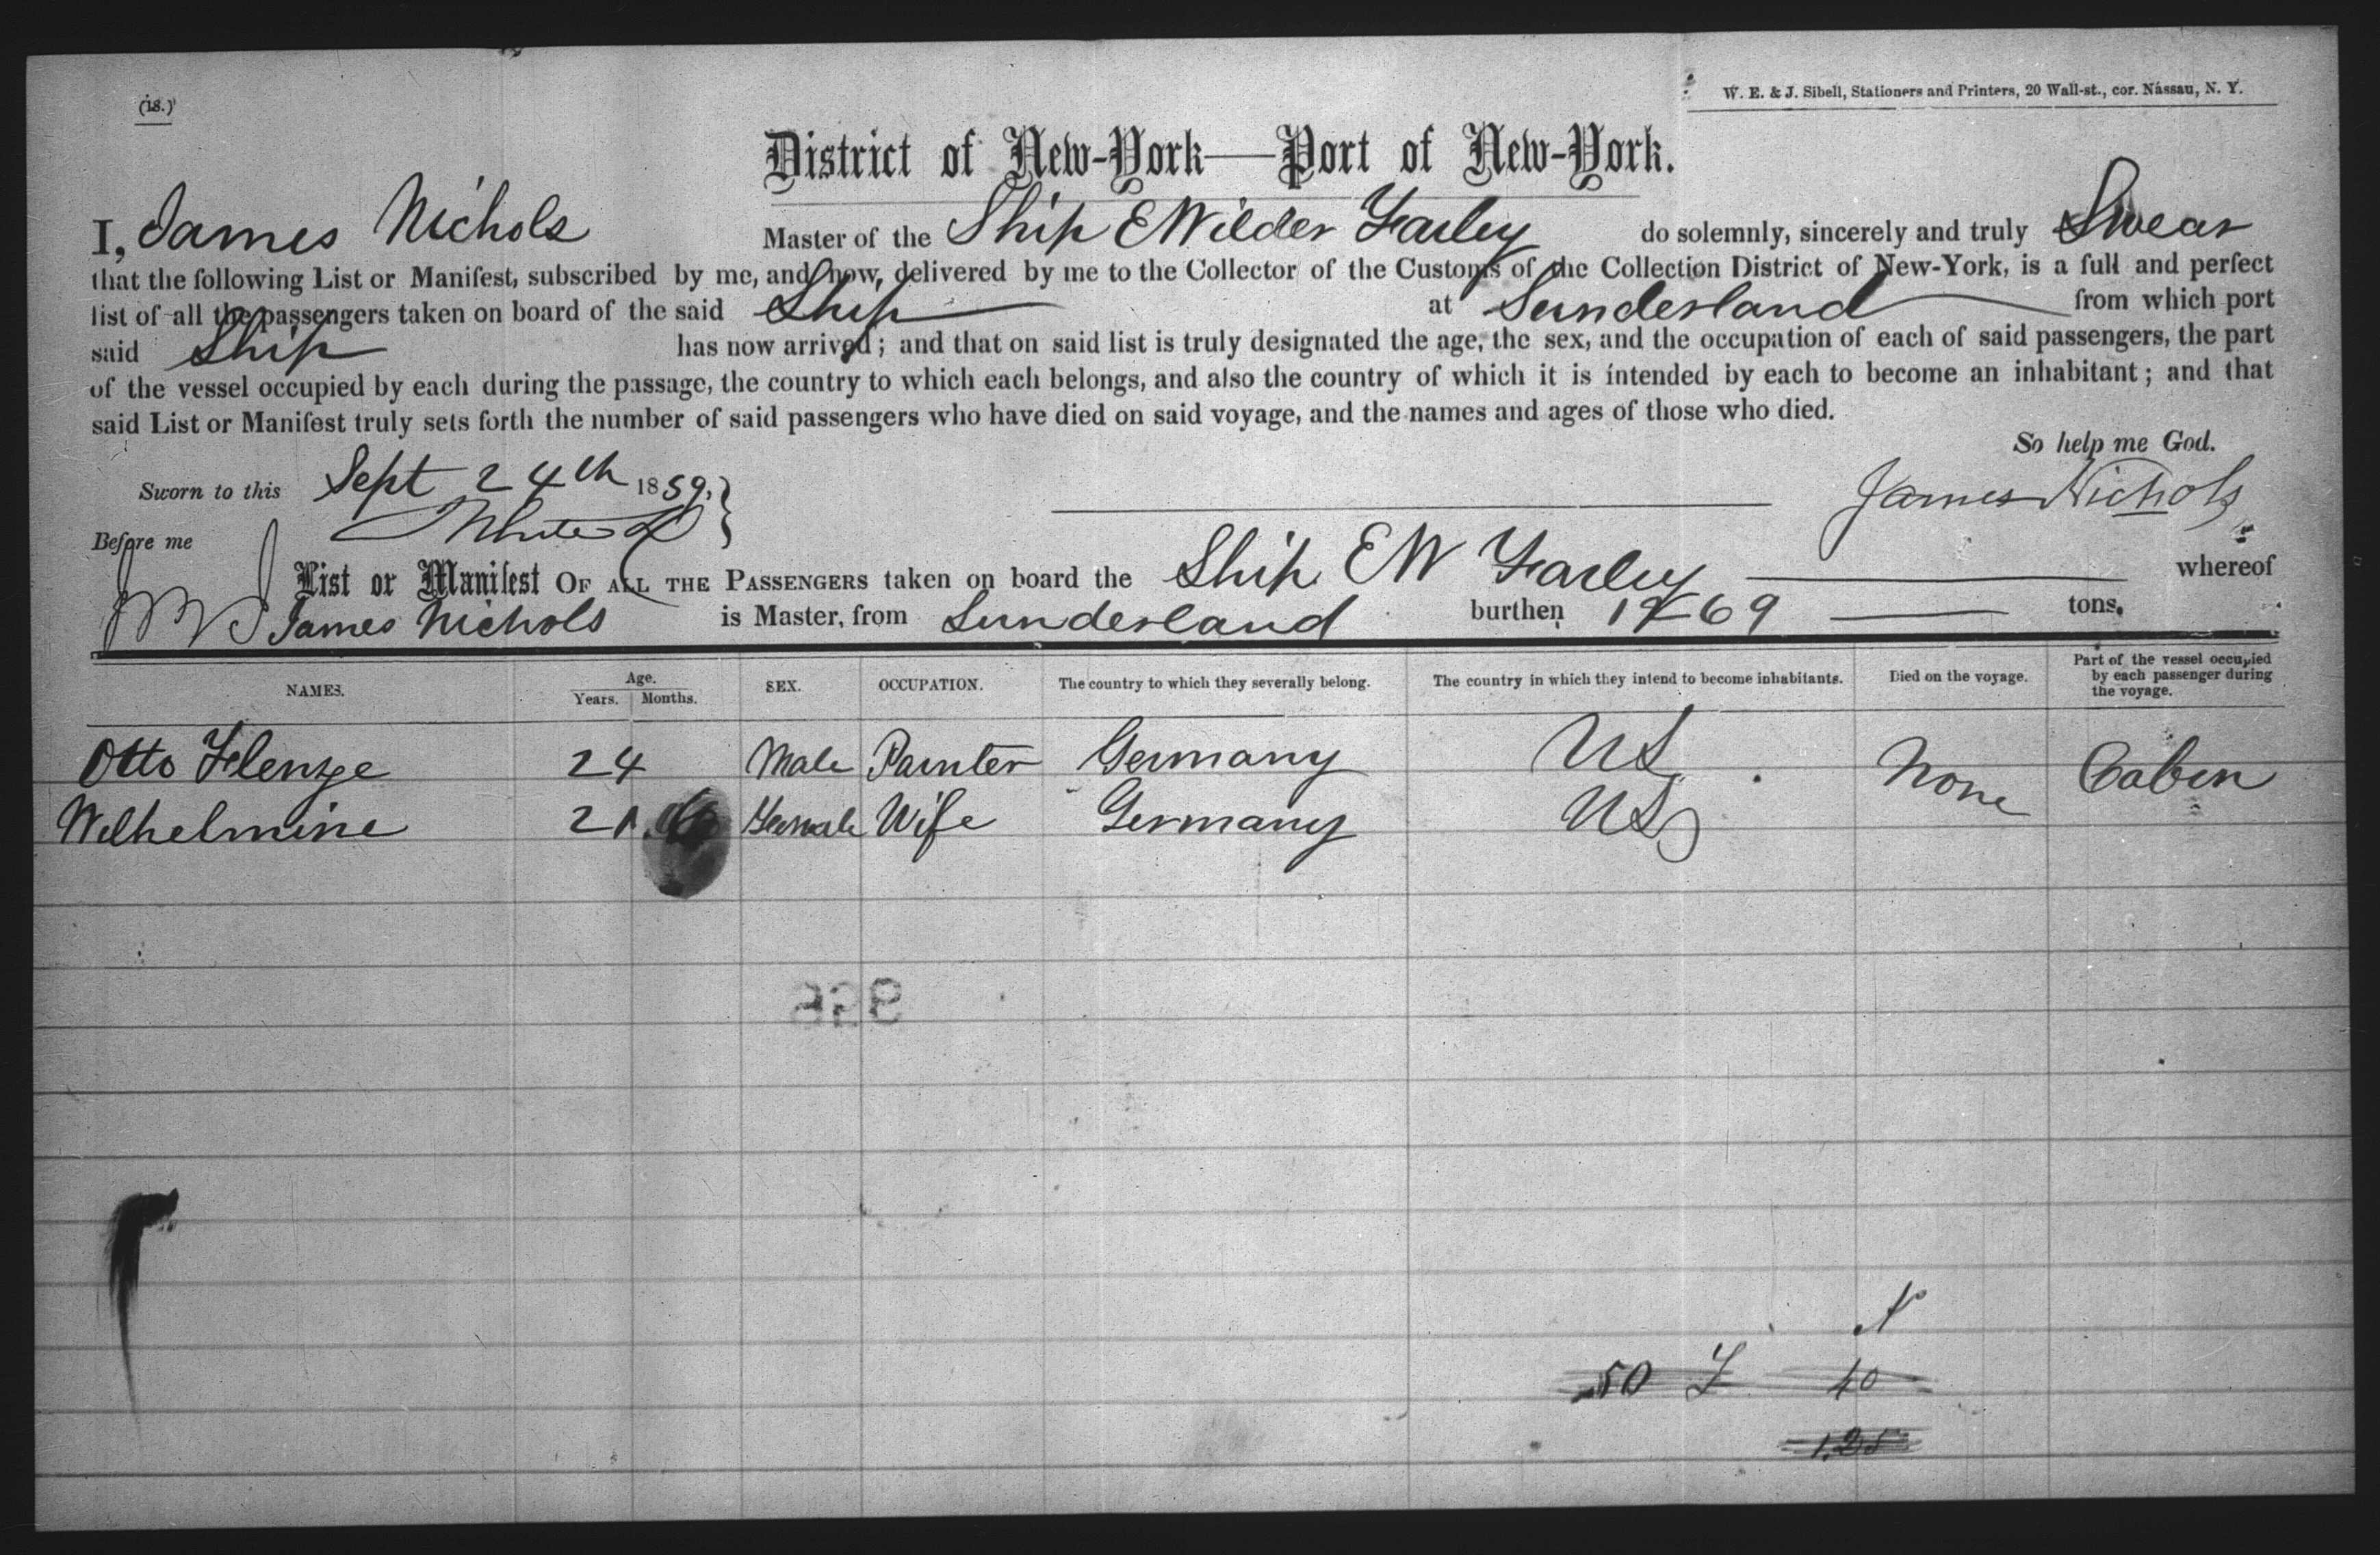 (18.)
W. E. & J. Sibell, Stationers and Printers, 20 Wall-st., cor. Nassau, N. Y.
District of New-York—Port of New-York.
I, James Nichols Master of the Ship E Wilder Farley do solemnly, sincerely and truly Swear
that the following List or Manifest, subscribed by me, and now, delivered by me to the Collector of the Customs of the Collection District of New-York, is a full and perfect
list of all the passengers taken on board of the said Ship at Sunderland from which port
said Ship has now arrived; and that on said list is truly designated the age, the sex, and the occupation of each of said passengers, the part
of the vessel occupied by each during the passage, the country to which each belongs, and also the country of which it is intended by each to become an inhabitant; and that
said List or Manifest truly sets forth the number of said passengers who have died on said voyage, and the names and ages of those who died.
So help me God.
Sworn to this Sept 24th 1859. James Nichols
Before me
List or Manifest OF ALL THE PASSENGERS taken on board the Ship E W Farley whereof
James Nichols is Master, from Sunderland burthen tons.
NAMES. Age. Years. Months. SEX. OCCUPATION. The country to which they severally belong. The country in which they intend to become inhabitants. Died on the voyage. Part of the vessel occupied by each passenger during the voyage.
Otto Flenze 24 Male Painter Germany US None Cabin
Wilhelmine 21 Female Wife Germany US
50 40
1.25